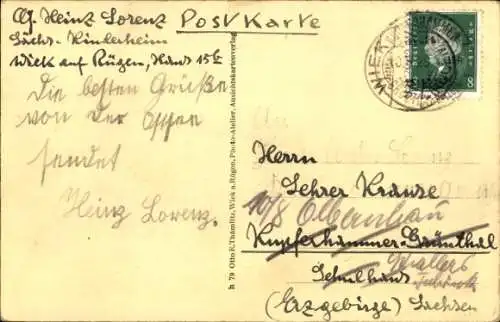 Heinz Lorenz
Postkarte
Sächs. Kinderheim
Wiek auf Rügen, Haus 15b
Die besten Grüße
von der Ostsee
sendet
Heinz Lorenz.
h 79 Otto K. Thämlitz, Wiek a. Rügen, Photo-Atelier, Ansichtskartenverlag
WIEK
8
Herrn
Lehrer Krause
10/8 Olbernhau
Kupferhammer-Grünthal
Schulhaus
(Erzgebirge) Sachsen